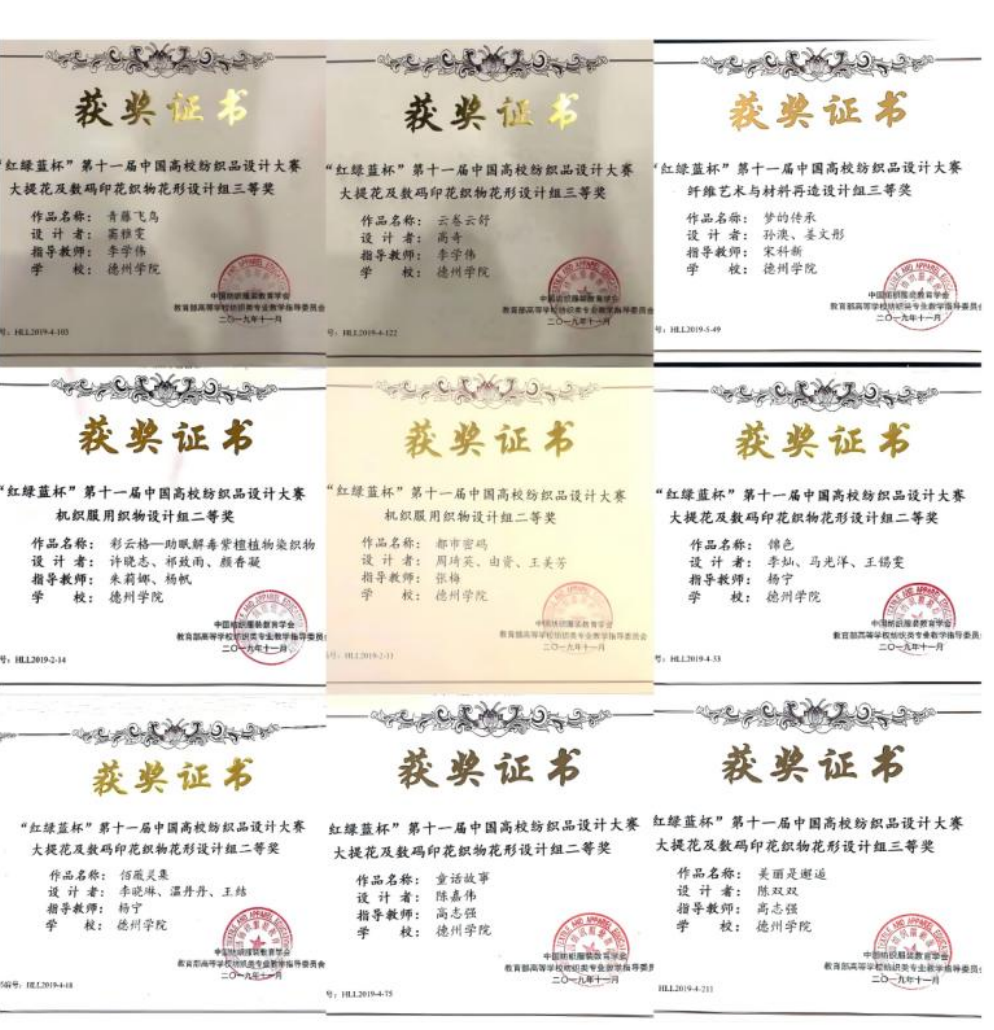 获奖证书
“红绿蓝杯”第十一届中国高校纺织品设计大赛
大提花及数码印花织物花形设计组三等奖
作品名称： 青藤飞鸟
设 计 者： 窦雅雯
指导教师： 李学伟
学 校： 德州学院
中国纺织服装教育学会
教育部高等学校纺织类专业教学指导委员会
二〇一九年十一月
号：HLL2019-4-103
获奖证书
“红绿蓝杯”第十一届中国高校纺织品设计大赛
大提花及数码印花织物花形设计组三等奖
作品名称： 云卷云舒
设 计 者： 高奇
指导教师： 李学伟
学 校： 德州学院
中国纺织服装教育学会
教育部高等学校纺织类专业教学指导委员会
二〇一九年十一月
号：HLL2019-4-122
获奖证书
“红绿蓝杯”第十一届中国高校纺织品设计大赛
纤维艺术与材料再造设计组三等奖
作品名称： 梦的传承
设 计 者： 孙澳、姜文彤
指导教师： 宋科新
学 校： 德州学院
中国纺织服装教育学会
教育部高等学校纺织类专业教学指导委员会
二〇一九年十一月
号：HLL2019-5-49
获奖证书
“红绿蓝杯”第十一届中国高校纺织品设计大赛
机织服用织物设计组二等奖
作品名称： 彩云格—助眠解毒紫檀植物染织物
设 计 者： 许晓志、祁致雨、颜香凝
指导教师： 朱莉娜、杨帆
学 校： 德州学院
中国纺织服装教育学会
教育部高等学校纺织类专业教学指导委员会
二〇一九年十一月
号：HLL2019-2-14
获奖证书
“红绿蓝杯”第十一届中国高校纺织品设计大赛
机织服用织物设计组二等奖
作品名称： 都市密码
设 计 者： 周琦英、由资、王美芳
指导教师： 张梅
学 校： 德州学院
中国纺织服装教育学会
教育部高等学校纺织类专业教学指导委员会
二〇一九年十一月
号：HLL2019-2-31
获奖证书
“红绿蓝杯”第十一届中国高校纺织品设计大赛
大提花及数码印花织物花形设计组二等奖
作品名称： 锦色
设 计 者： 李灿、马光洋、王锡雯
指导教师： 杨宁
学 校： 德州学院
中国纺织服装教育学会
教育部高等学校纺织类专业教学指导委员会
二〇一九年十一月
号：HLL2019-4-33
获奖证书
“红绿蓝杯”第十一届中国高校纺织品设计大赛
大提花及数码印花织物花形设计组二等奖
作品名称： 佰蔽灵集
设 计 者： 李晓琳、温丹丹、王结
指导教师： 杨宁
学 校： 德州学院
中国纺织服装教育学会
教育部高等学校纺织类专业教学指导委员会
二〇一九年十一月
编号：HLL2019-4-18
获奖证书
红绿蓝杯”第十一届中国高校纺织品设计大赛
大提花及数码印花织物花形设计组二等奖
作品名称： 童话故事
设 计 者： 陈嘉伟
指导教师： 高志强
学 校： 德州学院
中国纺织服装教育学会
教育部高等学校纺织类专业教学指导委员会
二〇一九年十一月
号：HLL2019-4-75
获奖证书
红绿蓝杯”第十一届中国高校纺织品设计大赛
大提花及数码印花织物花形设计组三等奖
作品名称： 美丽是邂逅
设 计 者： 陈双双
指导教师： 高志强
学 校： 德州学院
中国纺织服装教育学会
教育部高等学校纺织类专业教学指导委员会
二〇一九年十一月
HLL2019-4-211